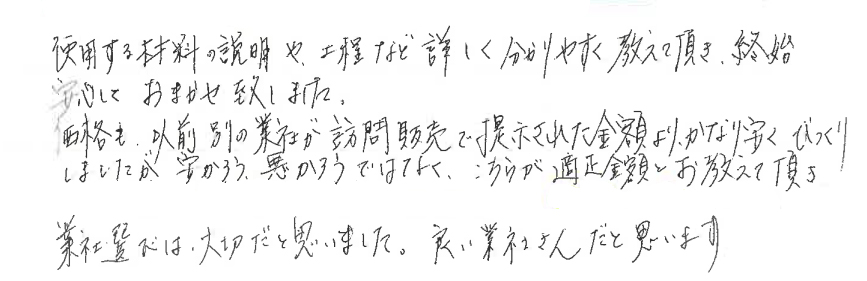 使用する材料の説明や、工程など詳しく分かりやすく教えて頂き、終始
安心して おまかせ致しました。
価格も、以前別の業社が訪問販売で提示された金額より、かなり安く びっくり
しましたが、安かろう、悪かろうではなく、こちらが適正金額とお教えて頂き
業社選びは、大切だと思いました。良い業社さんだと思います